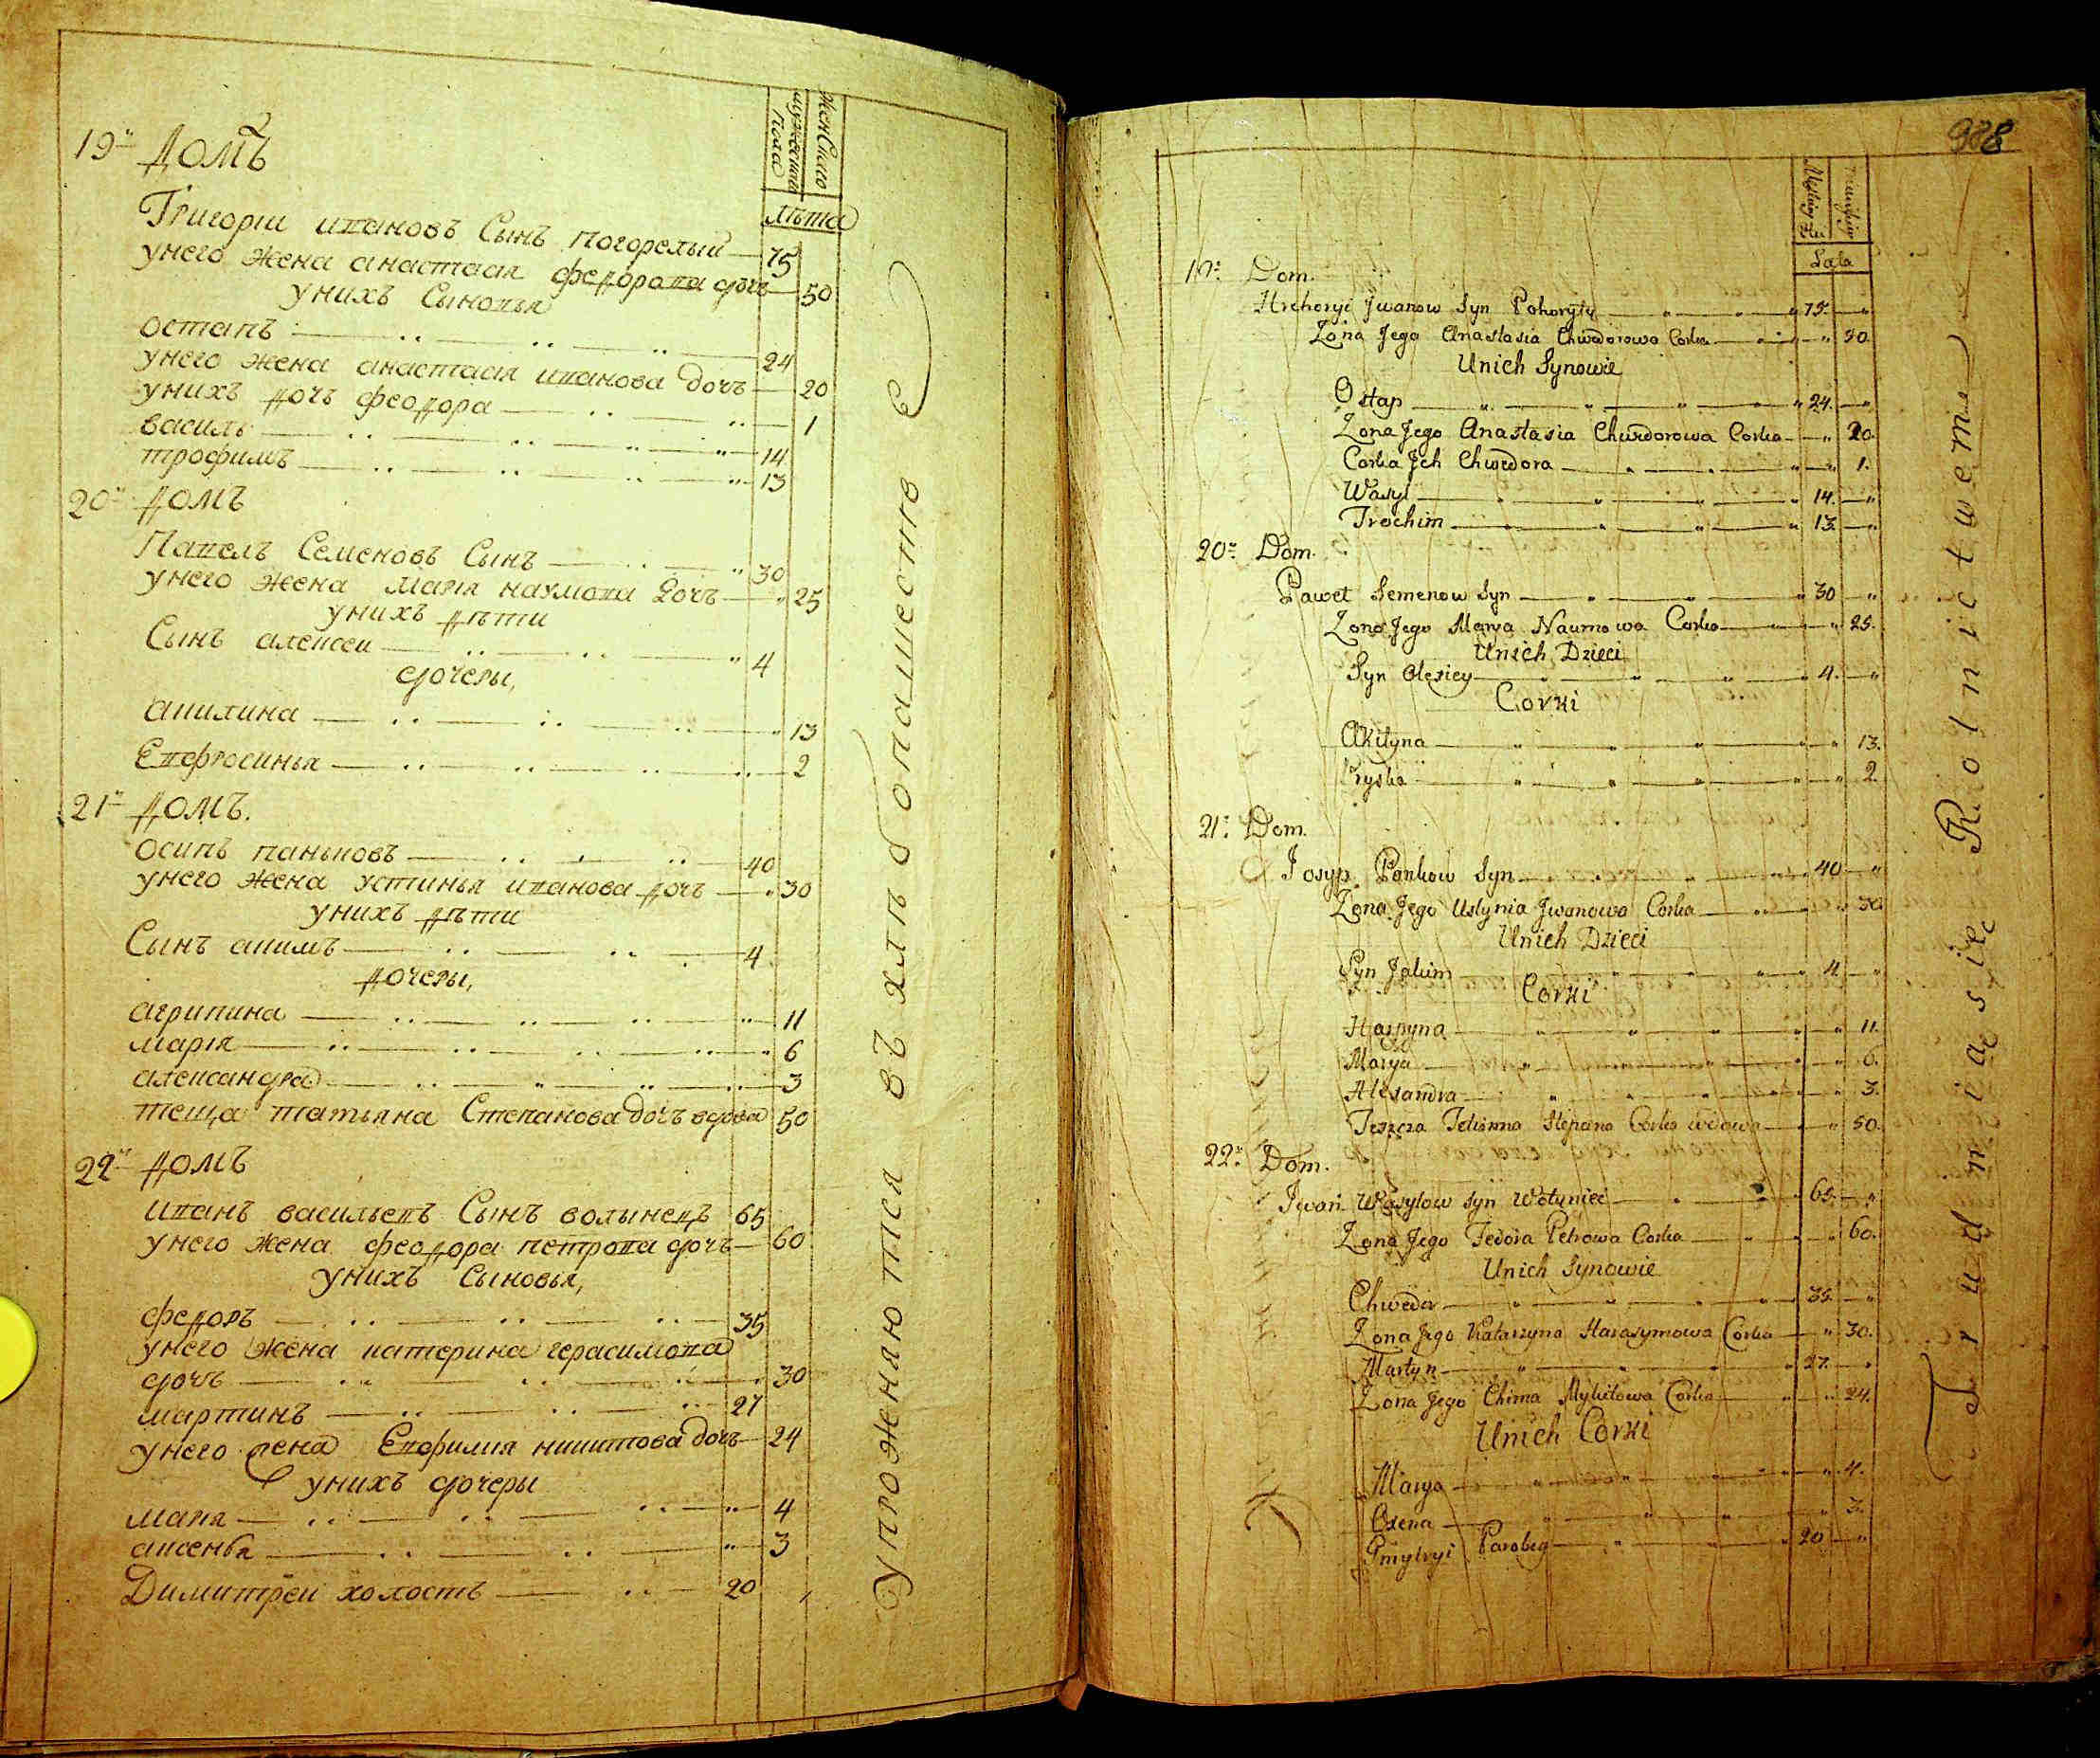 Мужеска
Пола
Женскаго
Лѣта
19й Домъ
Григорiи ивановъ Сынъ погорелый — 75
унего жена анастасия федорова дочь — 50
унихъ Сыновья
остапъ — 24
унего жена анастасия иванова дочь — 20
унихъ дочь феодора — 1
василь — 14
трофимъ — 13
20й домъ
Павелъ Семеновъ Сынъ — 30
унего жена марiя наумова дочь — 25
унихъ дѣти
Сынъ алексеи — 4
дочеры,
акилина — 13
Евфросинья — 2
21й домъ.
осипъ паньковъ — 40
унего жена устинья иванова дочь — 30
унихъ дѣти
Сынъ акимъ — 4
дочеры,
агрипина — 11
марiя — 6
александра — 3
теща татьяна Степанова дочь вдова 50
22й домъ
иванъ васильевъ Сынъ волынецъ 65
унего жена феодора петрова дочь — 60
унихъ Сыновья,
федоръ — 35
унего жена катерина герасимова
дочь — 30
мартинъ — 27
унего жена Евфимия никитова дочь — 24
унихъ дочеры
мария — 4
аксенья — 3
Димитреи холостъ — 20
упрожняются въ хлѣбопашестве
928
Męskiey
Płci
Lata
19: Dom.
Hrehoryi Jwanow Syn Pohoryły — 75.
Zona Jego Anastasia Chwedorowa Corka — 50.
Unich Synowie
Ostap — 24.
Zona Jego Anastasia Chwedorowa Corka — 20.
Corka Jch Chwedora — 1.
Wasyl — 14.
Trochim — 13.
20: Dom.
Paweł Semenow Syn — 30
Zona Jego Marya Naumowa Corka — 25.
Unich Dzieci
Syn Olexiey — 4.
Corki
Akilyna — 13.
Pryska — 2.
21: Dom.
Josyp Pankow Syn — 40
Zona Jego Ustynia Jwanowa Corka — 30
Unich Dzieci
Syn Jakim — 4.
Corki
Harpyna — 11.
Marya — 6.
Alexandra — 3.
Teszcza Tetianna Stepana Corka wdowa — 50.
22: Dom.
Jwan Wasylow Syn Wołyniec — 65.
Zona Jego Fedora Petrowa Corka — 60.
Unich Synowie
Chwedor — 35.
Zona Jego Katarzyna Harasymowa Corka — 30.
Martyn — 27.
Zona Jego Chima Mykitowa Corka — 24.
Unich Corki
Marya — 4.
Oxena — 3.
Dmytryi Parobeg — 20
Trudnią się Rolnictwem